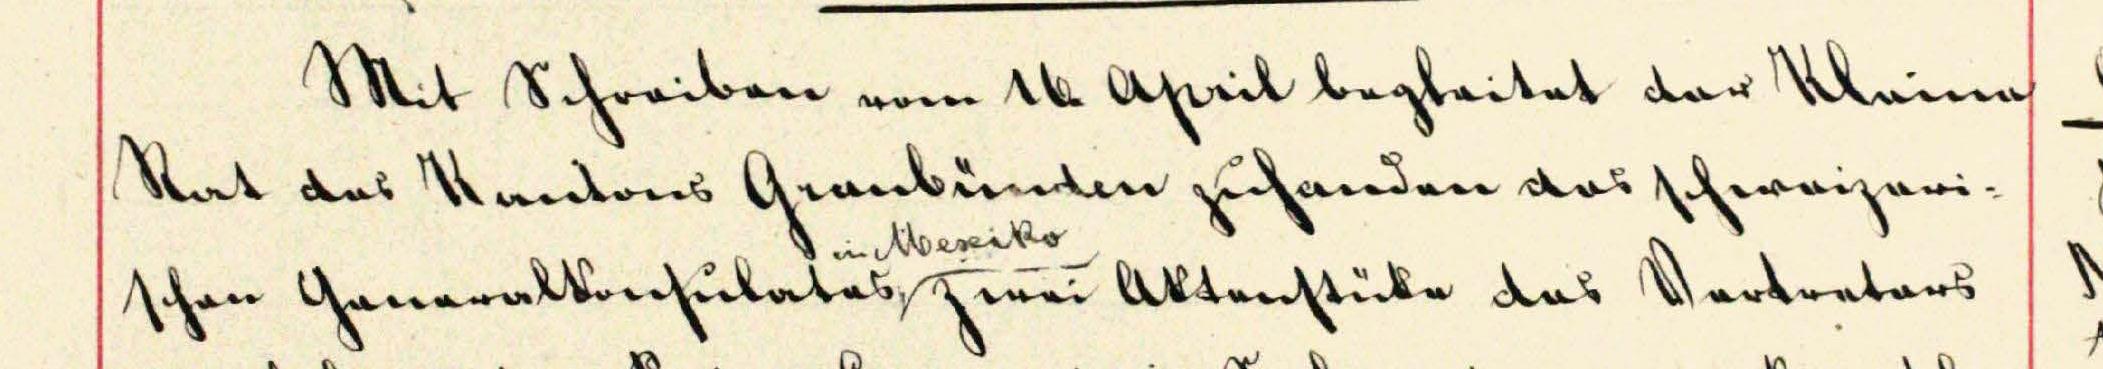 Mit Schreiben vom 16. April begleitet der Kleine
Rat des Kantons Graubünden zuhanden des schweizeri-
in Mexiko
schen Generalkonsulates, zwei Aktenstüke des Vertreters